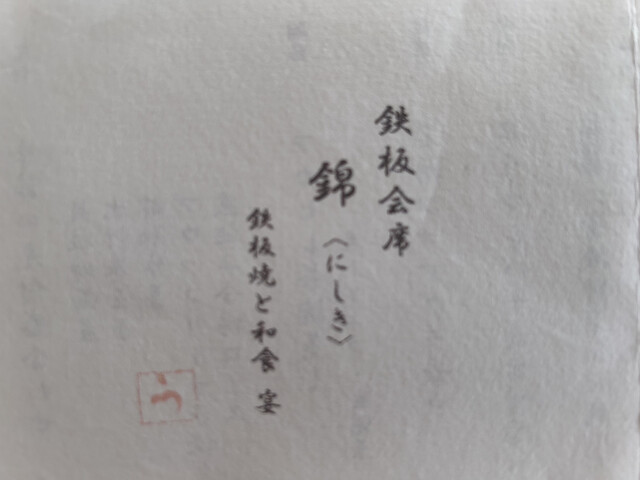 鉄板会席
錦〈にしき〉
鉄板焼と和食 宴
う